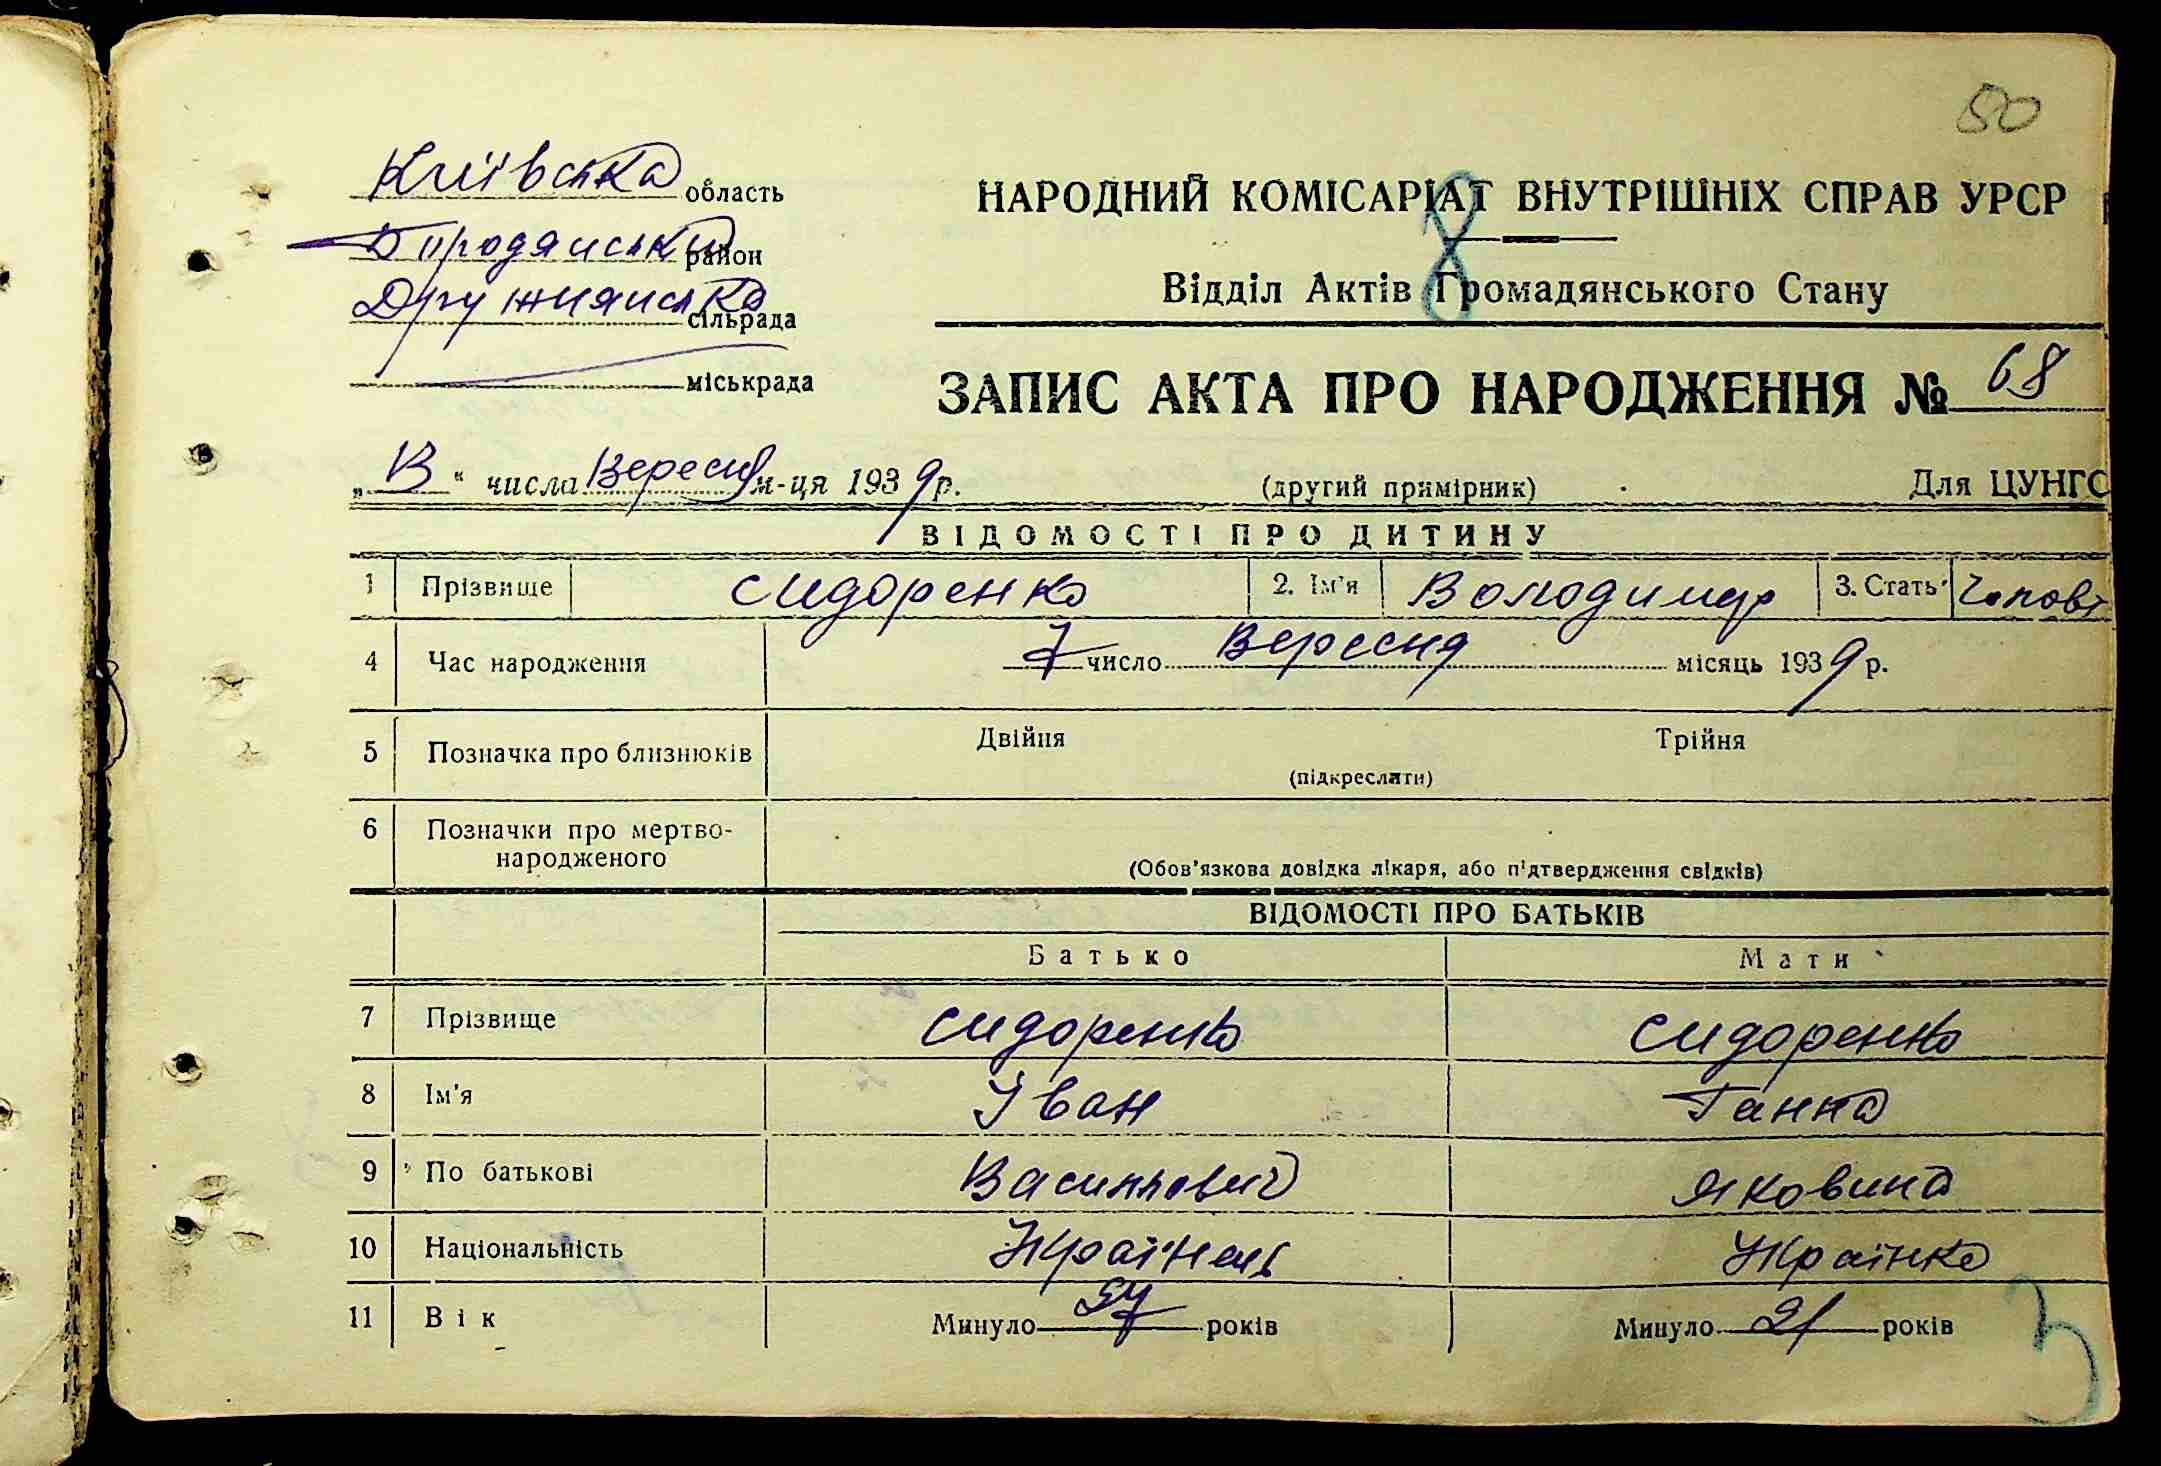 50
Київська область
Бородянський район
Дружнянська сільрада
міськрада
НАРОДНИЙ КОМІСАРІАТ ВНУТРІШНІХ СПРАВ УРСР
8
Відділ Актів Громадянського Стану
ЗАПИС АКТА ПРО НАРОДЖЕННЯ № 68
„13“ числа Вересня м-ця 1939 р. (другий примірник) Для ЦУНГО
ВІДОМОСТІ ПРО ДИТИНУ
1 Прізвище Сидоренко 2. Ім'я Володимир 3. Стать Чолові
4 Час народження 7 число Вересня місяць 1939 р.
5 Позначка про близнюків Двійня Трійня
(підкреслити)
6 Позначки про мертво-
народженого
(Обов'язкова довідка лікаря, або підтвердження свідків)
ВІДОМОСТІ ПРО БАТЬКІВ
Батько Мати
7 Прізвище Сидоренко Сидоренко
8 Ім'я Іван Ганна
9 По батькові Васильович Яковина
10 Національність Українець Українка
11 Вік Минуло років Минуло 21 років
3